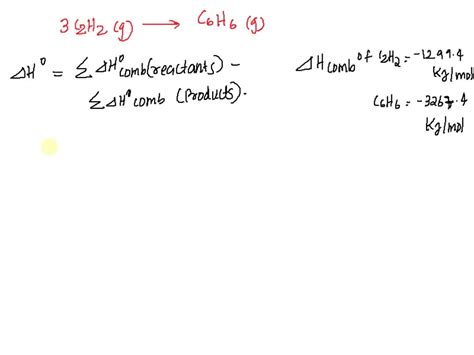 3 C2H2 (g) ⟶ C6H6 (g)
ΔH⁰ = Σ ΔH⁰comb (reactants) –
Σ ΔH⁰ comb (Products).
ΔHcomb of C2H2 = -1299.4
KJ/mol
C6H6 = -3267.4
KJ/mol